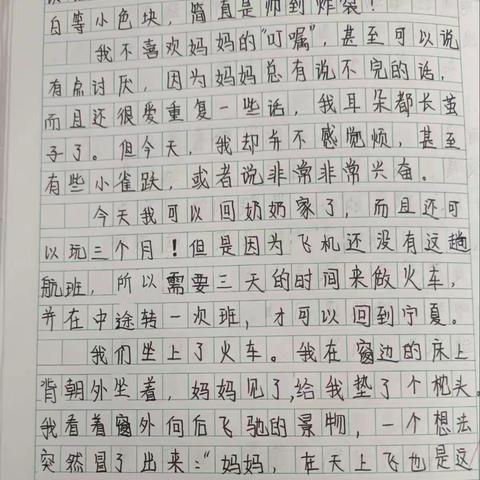 白等小色块，简直是帅到炸裂！
我不喜欢妈妈的“叮嘱”，甚至可以说
有点讨厌，因为妈妈总有说不完的话，
而且还很爱重复一些话，我耳朵都长茧
子了。但今天，我却并不感觉烦，甚至
有些小雀跃，或者说非常非常兴奋。
今天我可以回奶奶家了，而且还可
以玩三个月！但是因为飞机还没有这趟
航班，所以需要三天的时间来做火车，
并在中途转一次班，才可以回到宁夏。
我们坐上了火车。我在窗边的床上
背朝外坐着，妈妈见了,给我垫了个枕头。
我看着窗外向后飞驰的景物，一个想法
突然冒了出来：“妈妈，在天上飞也是这